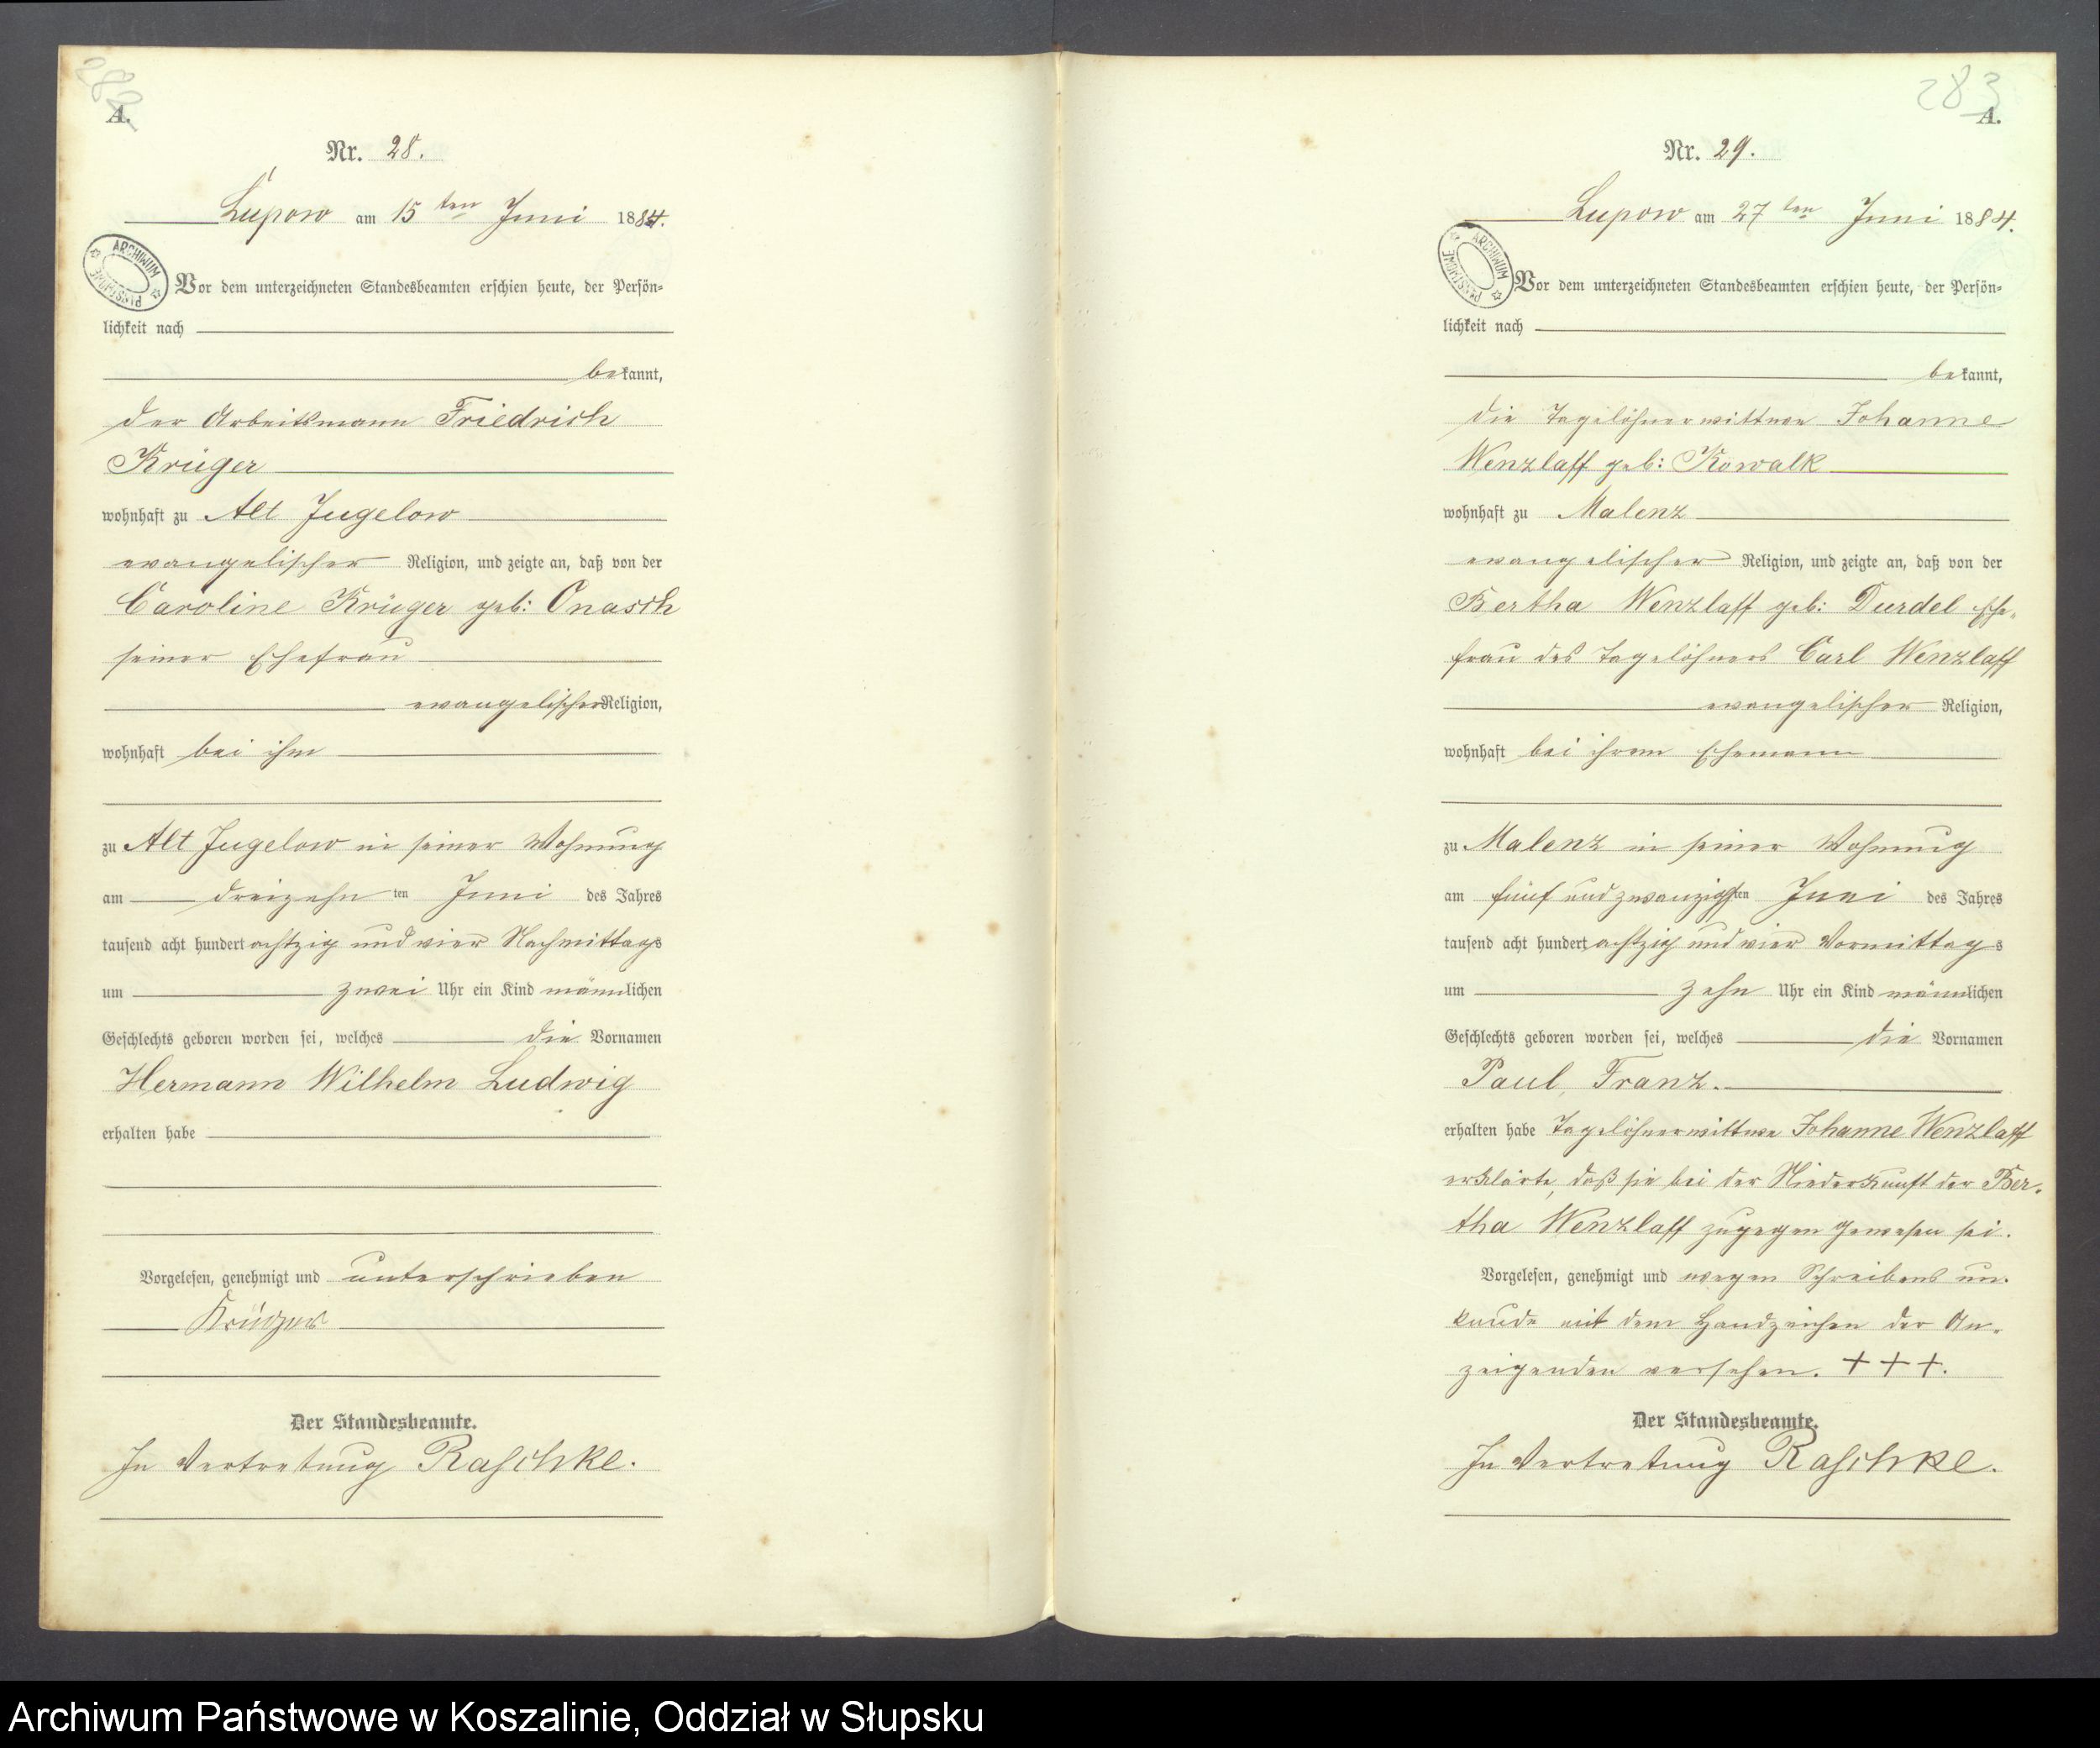 282
A.
Nr. 28.
Lupow am 15 ten Juni 1884.
ARCHIWUM PAŃSTWOWE
Vor dem unterzeichneten Standesbeamten erschien heute, der Persön-
lichkeit nach
bekannt,
der Arbeitsmann Friedrich
Krüger
wohnhaft zu Alt Jugelow
evangelischer Religion, und zeigte an, daß von der
Caroline Krüger geb: Onasch
seiner Ehefrau
evangelischer Religion,
wohnhaft bei ihm
zu Alt Jugelow in seiner Wohnung
am dreizehn ten Juni des Jahres
tausend acht hundert achtzig und vier Nachmittags
um zwei Uhr ein Kind männlichen
Geschlechts geboren worden sei, welches die Vornamen
Hermann Wilhelm Ludwig
erhalten habe
Vorgelesen, genehmigt und unterschrieben
Krüger
Der Standesbeamte.
In Vertretung Raschke.
283
A.
Nr. 29.
Lupow am 27 ten Juni 1884.
ARCHIWUM PAŃSTWOWE
Vor dem unterzeichneten Standesbeamten erschien heute, der Persön-
lichkeit nach
bekannt,
die Tagelöhnerwittwe Johanne
Wenzlaff geb: Kowalk
wohnhaft zu Malenz
evangelischer Religion, und zeigte an, daß von der
Bertha Wenzlaff geb: Durdel Ehe-
frau des Tagelöhners Carl Wenzlaff
evangelischer Religion,
wohnhaft bei ihrem Ehemann
zu Malenz in seiner Wohnung
am fünf und zwanzigsten Juni des Jahres
tausend acht hundert achtzig und vier Vormittags
um zehn Uhr ein Kind männlichen
Geschlechts geboren worden sei, welches die Vornamen
Paul, Franz.
erhalten habe Tagelöhnerwittwe Johanne Wenzlaff
erklärte, daß sie bei der Niederkunft der Ber-
tha Wenzlaff zugegen gewesen sei.
Vorgelesen, genehmigt und wegen Schreibens un-
kunde mit dem Handzeichen der An-
zeigenden versehen. + + +.
Der Standesbeamte.
In Vertretung Raschke.
Archiwum Państwowe w Koszalinie, Oddział w Słupsku